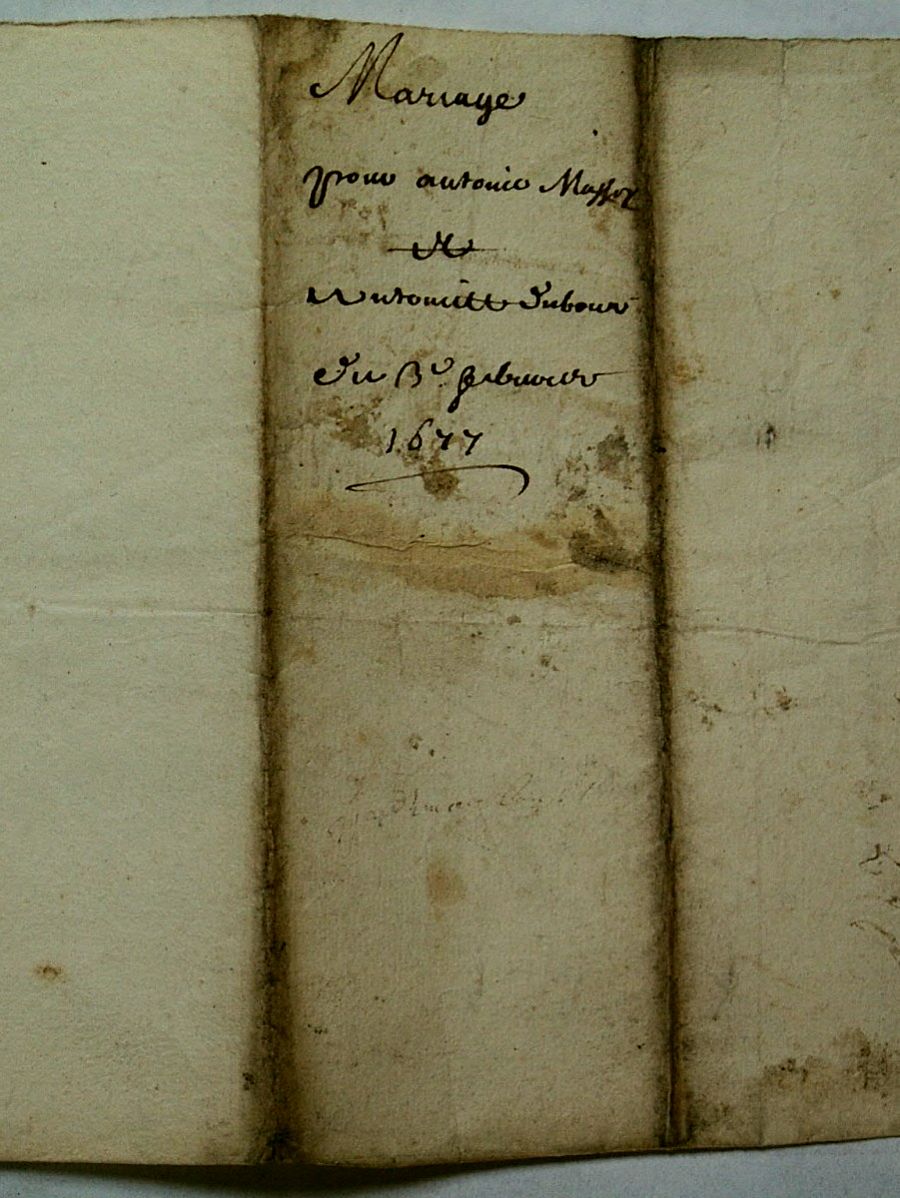 Mariage
pour antoine Massoz
Et
Antoniette Dubour
Du 13e febvrier
1677